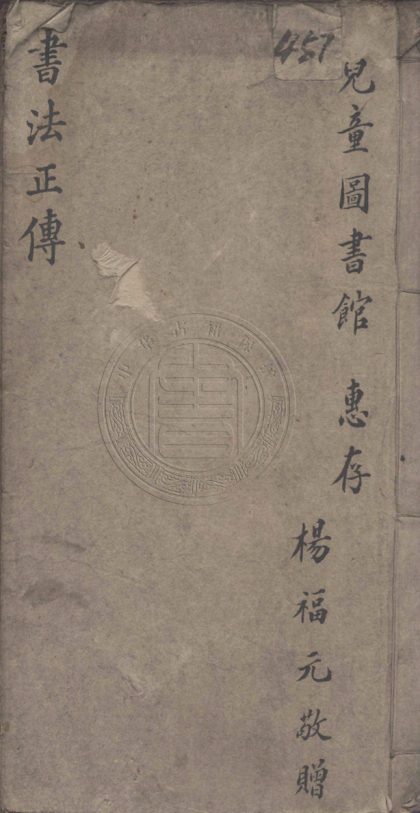 457
兒童圖書館 惠存
楊福元敬贈
書法正傳